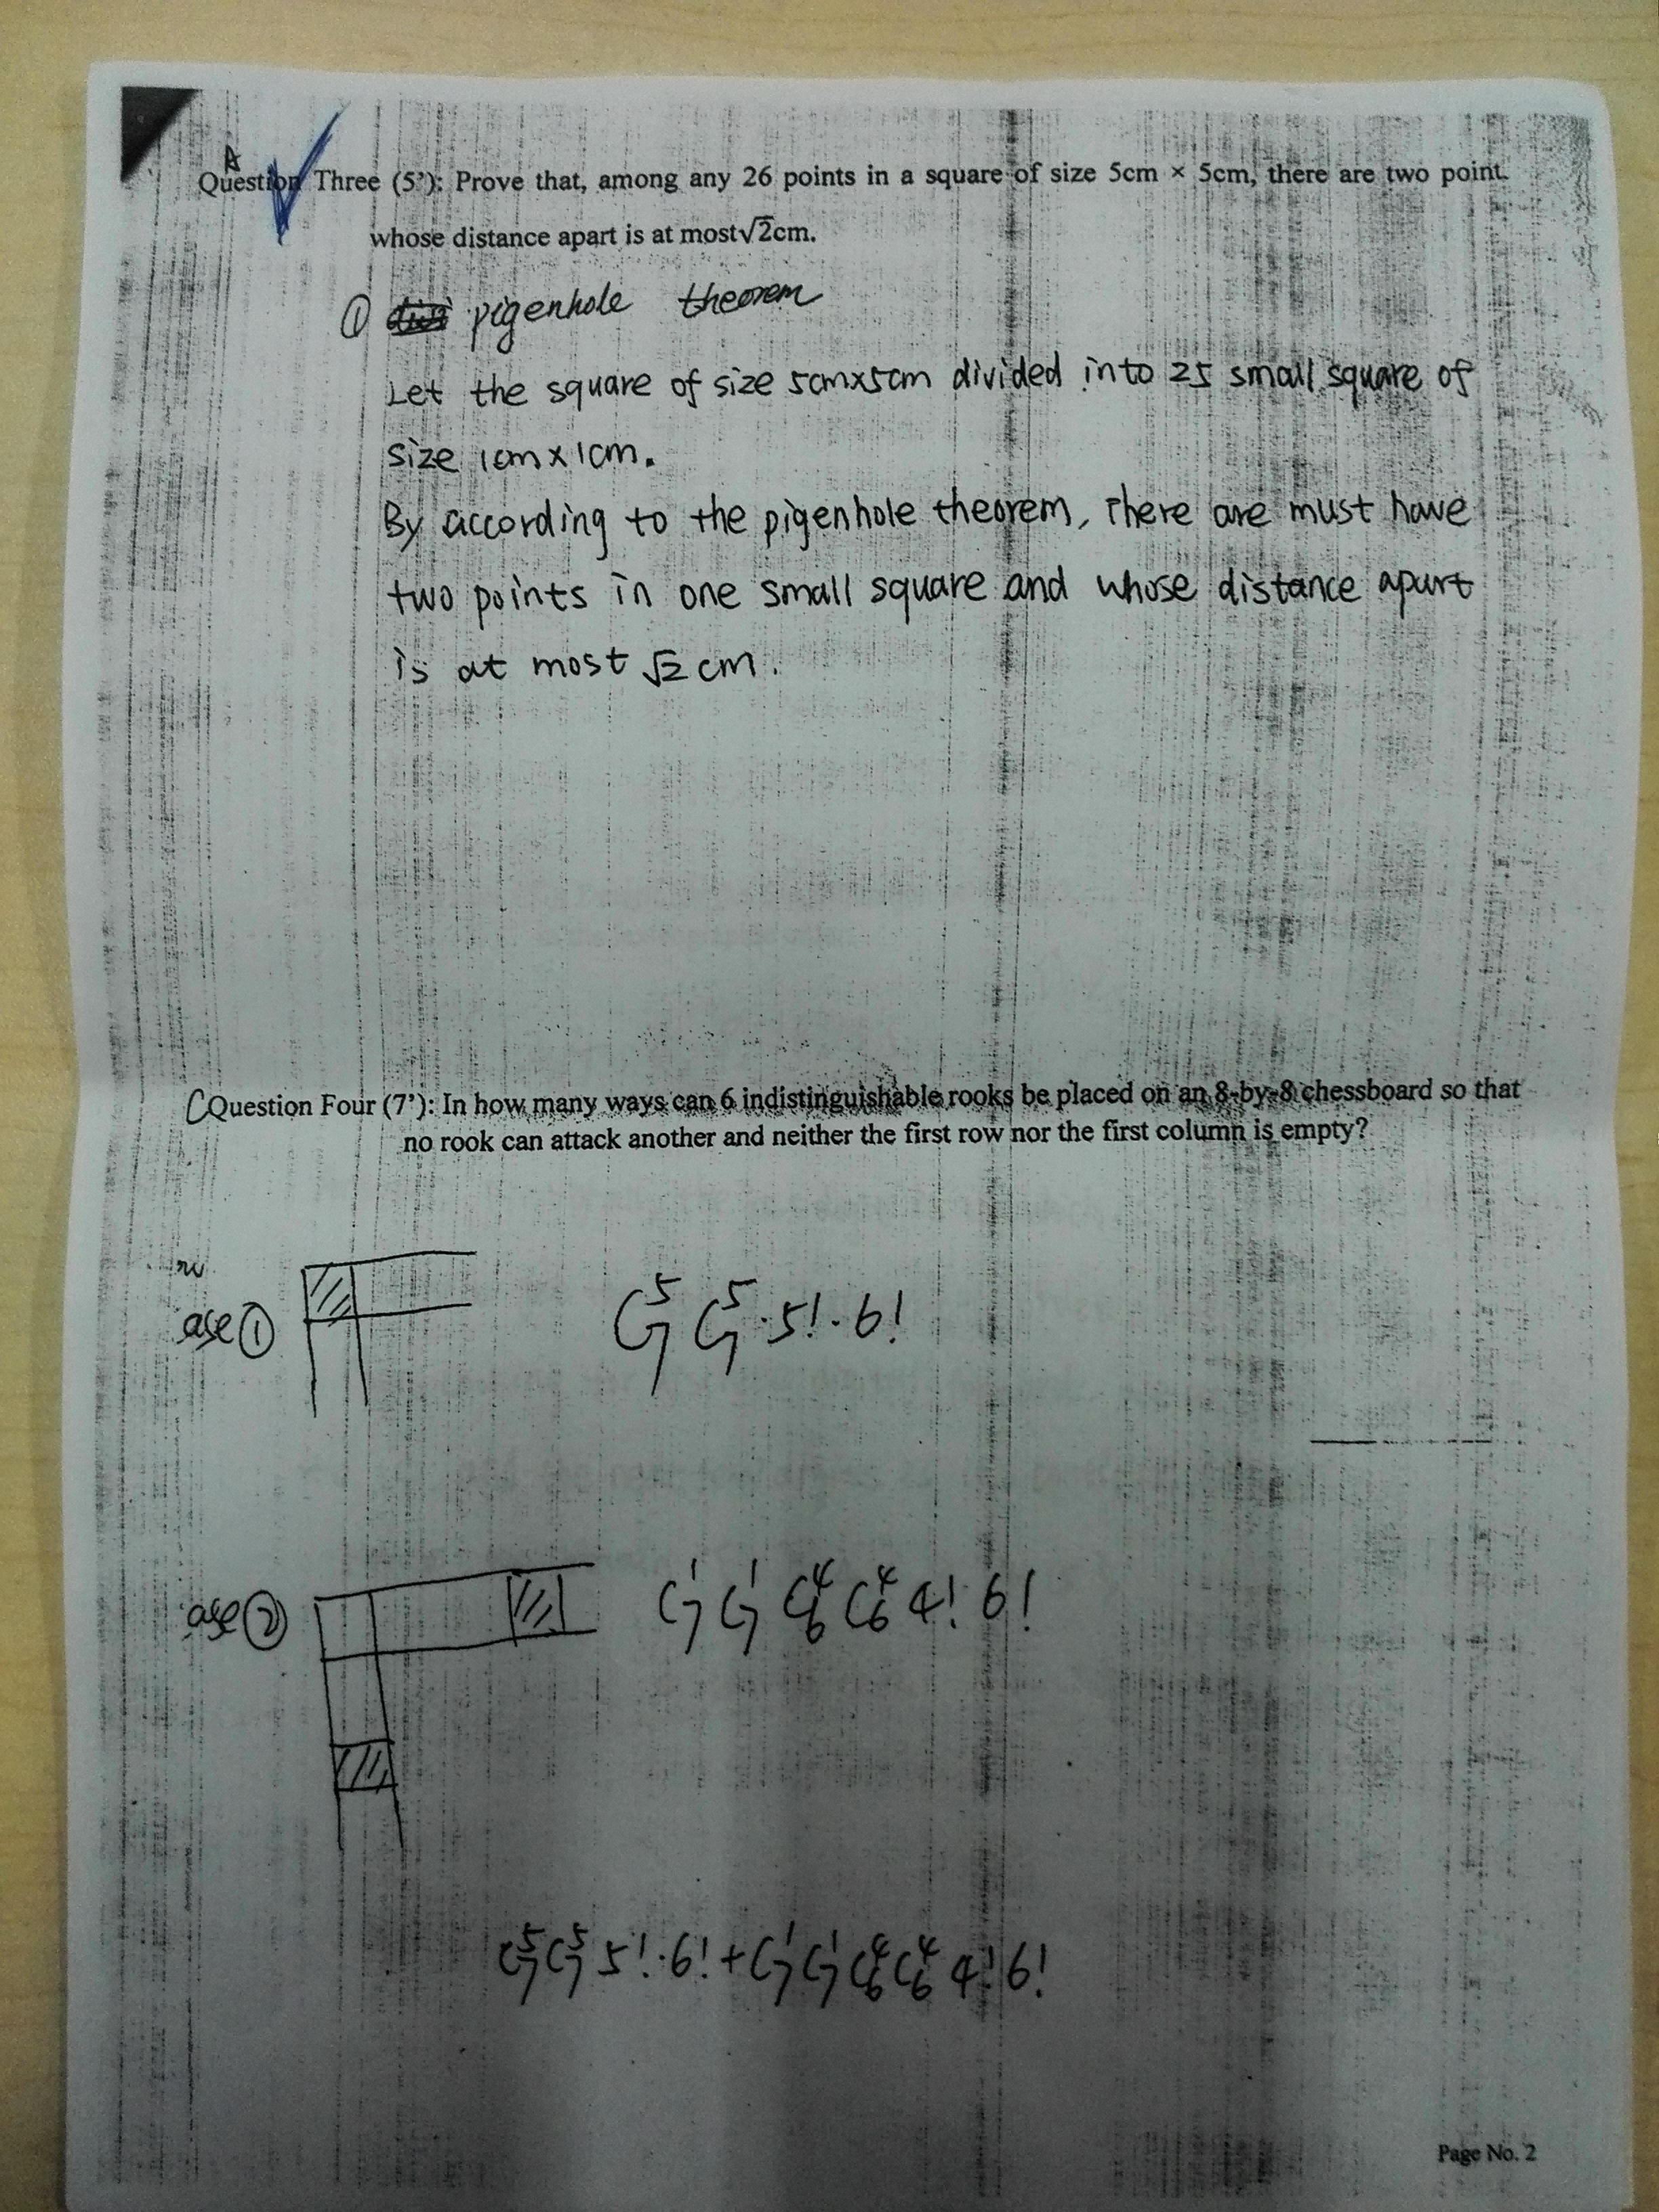 A
Question Three (5'): Prove that, among any 26 points in a square of size 5cm × 5cm, there are two point
whose distance apart is at most√2cm.
① pigenhole theorem
Let the square of size 5cm×5cm divided into 25 small square of
size 1cm×1cm.
By according to the pigenhole theorem, There are must have
two points in one small square and whose distance apart
is at most √2 cm.
C Question Four (7'): In how many ways can 6 indistinguishable rooks be placed on an 8-by-8 chessboard so that
no rook can attack another and neither the first row nor the first column is empty?
ase ① C₇⁵ C₇⁵ · 5! · 6!
ase ② C₇¹ C₇¹ C₆⁴ C₆⁴ 4! 6!
C₇⁵ C₇⁵ 5! · 6! + C₇¹ C₇¹ C₆⁴ C₆⁴ 4! 6!
Page No. 2